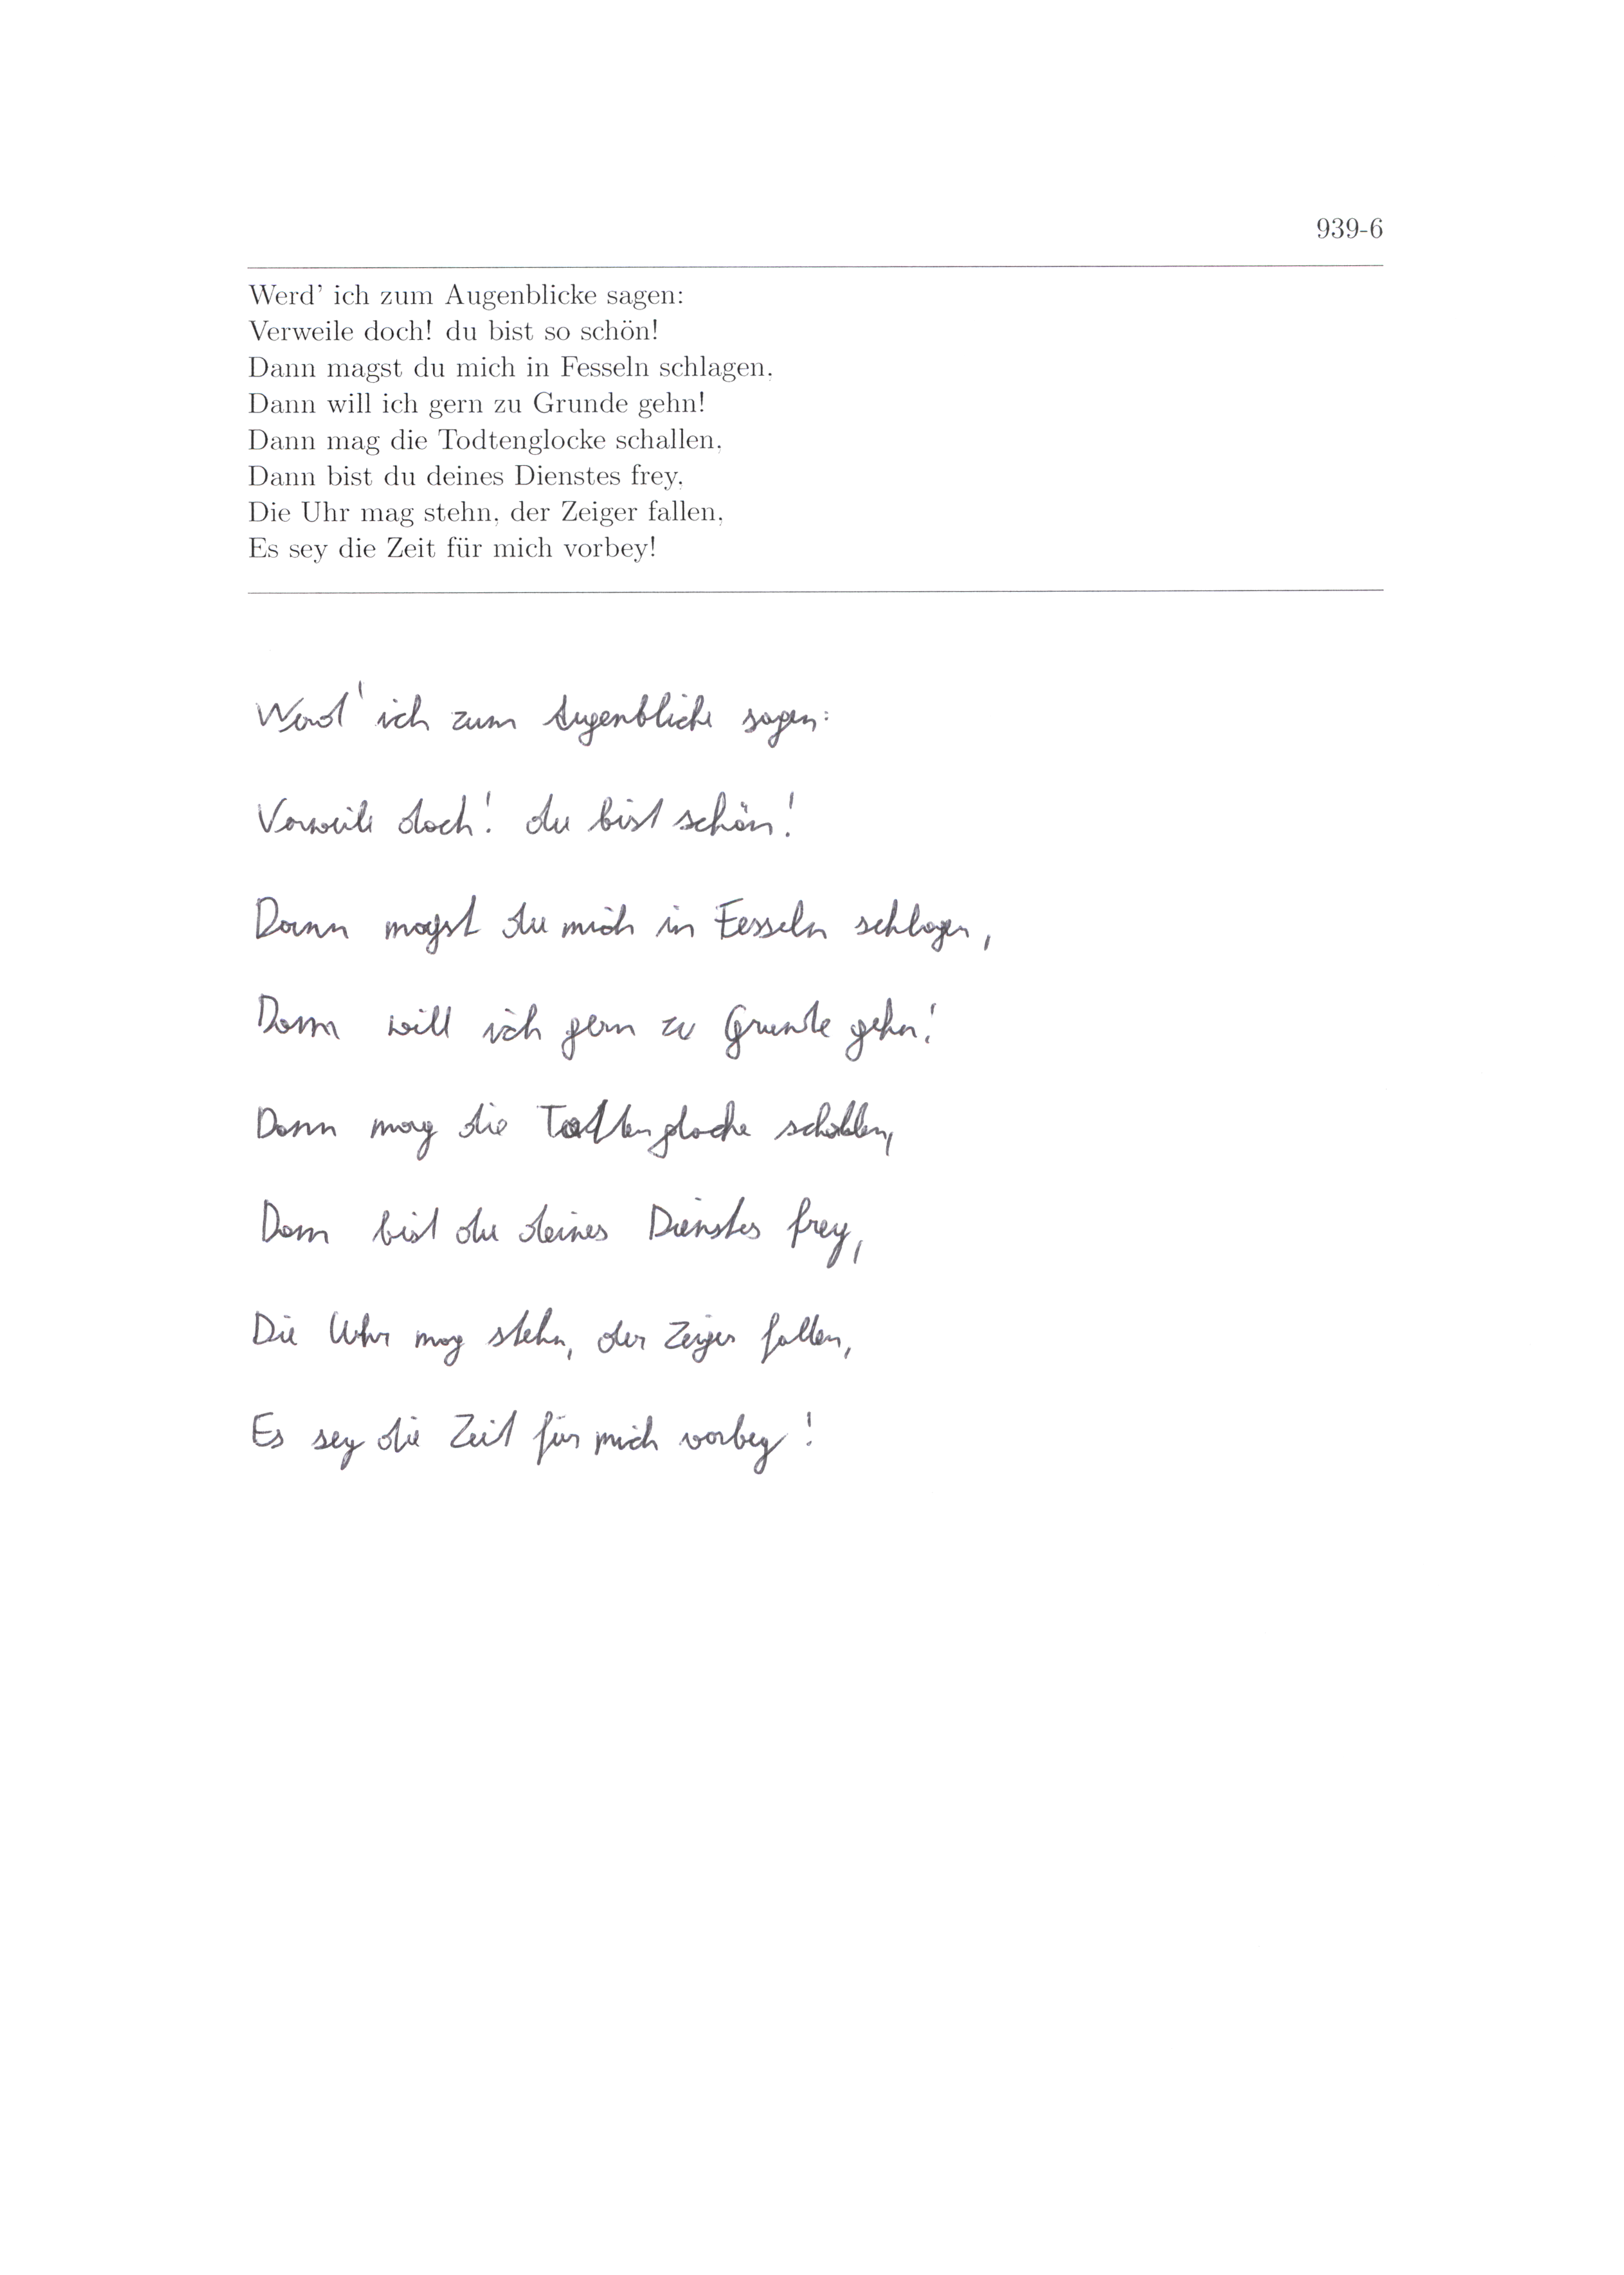 939-6
Werd' ich zum Augenblicke sagen:
Verweile doch! du bist so schön!
Dann magst du mich in Fesseln schlagen,
Dann will ich gern zu Grunde gehn!
Dann mag die Todtenglocke schallen,
Dann bist du deines Dienstes frey,
Die Uhr mag stehn, der Zeiger fallen,
Es sey die Zeit für mich vorbey!
Werd' ich zum Augenblicke sagen:
Verweile doch! du bist schön!
Dann magst du mich in Fesseln schlagen,
Dann will ich gern zu Grunde gehn!
Dann mag die Todtenglocke schallen,
Dann bist du deines Dienstes frey,
Die Uhr mag stehn, der Zeiger fallen,
Es sey die Zeit für mich vorbey!